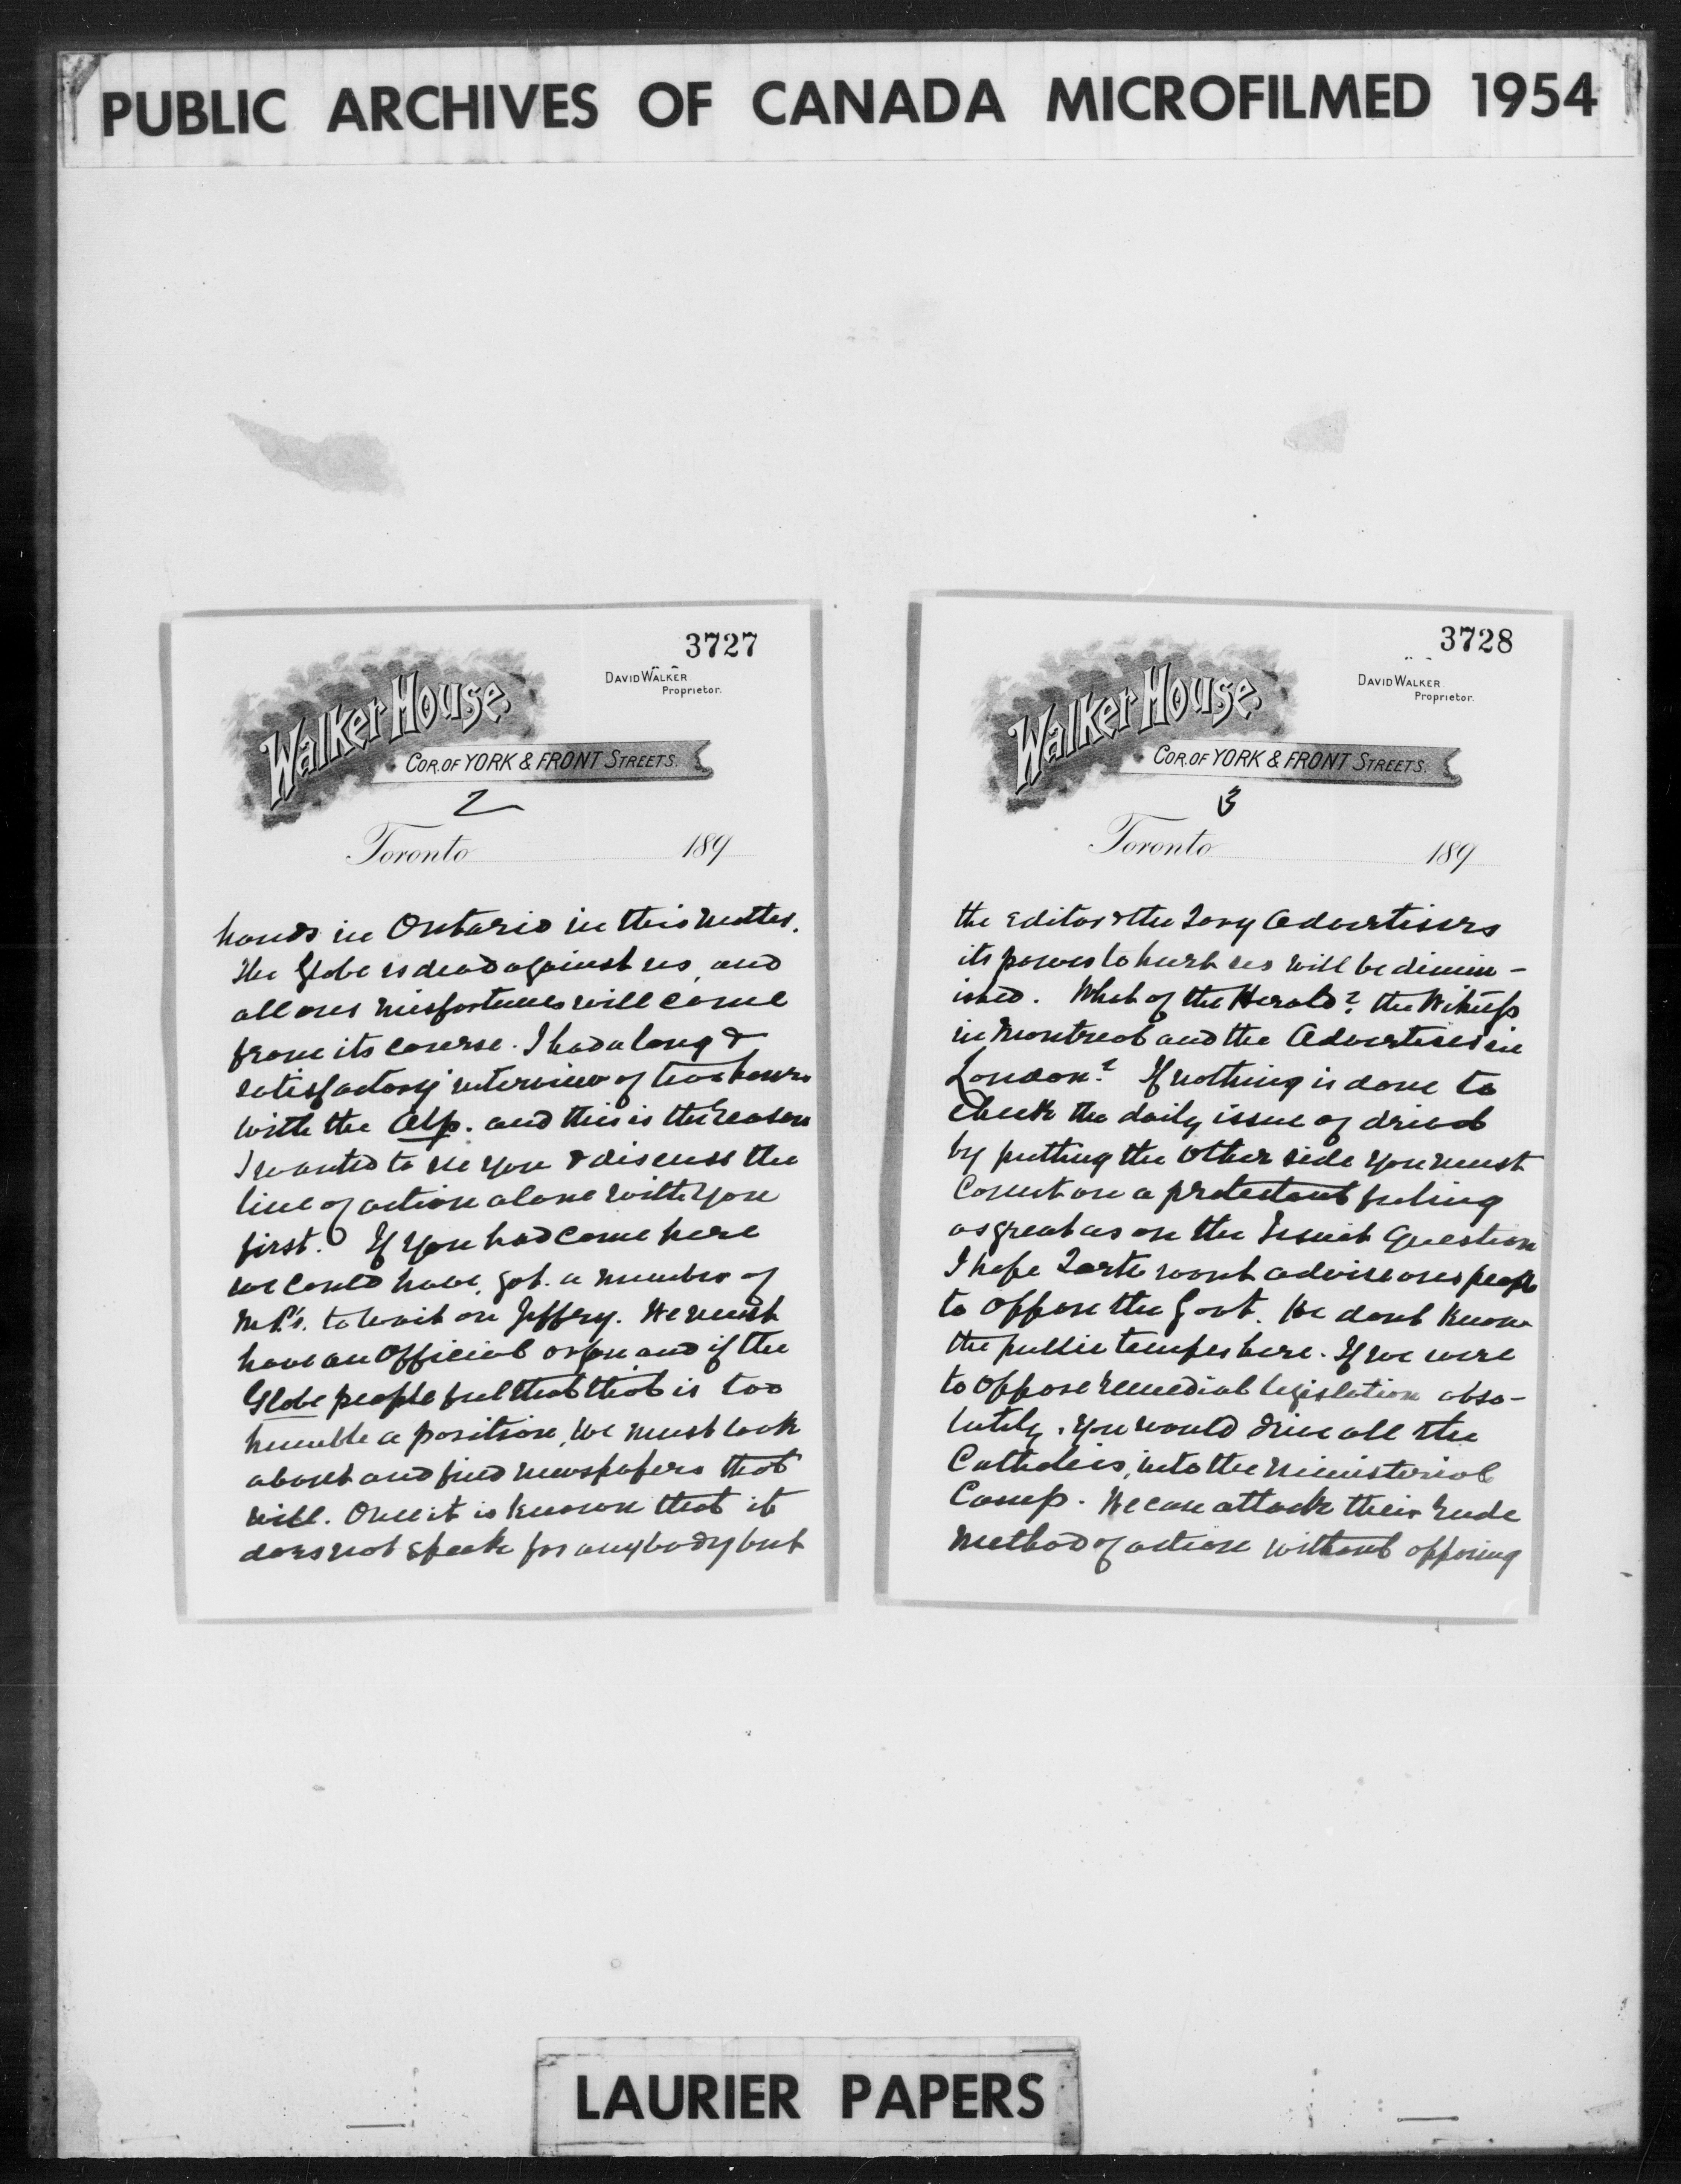 PUBLIC ARCHIVES OF CANADA MICROFILMED 1954
3727
DAVID WALKER
Proprietor.
Walker House.
COR. OF YORK & FRONT STREETS.
2
Toronto 189
hands in Ontario in this matter.
The Globe is dead against us, and
all our misfortunes will come
from its course. I had a long &
satisfactory interview of two hours
with the Abp. and this is the reason
I wanted to see you & discuss the
line of action alone with you
first. If you had come here
we could have, got. a number of
M.P's. to wait on Jeffery. We must
have an Official organ and if the
Globe people feel that that is too
humble a position, we must look
about and find newspapers that
will. Once it is known that it
does not speak for anybody but
3728
DAVID WALKER
Proprietor.
Walker House.
COR. OF YORK & FRONT STREETS.
3
Toronto 189
the Editor & the Tory Advertisers
its power to hurt us will be dimin-
ished. What of the Herald? the Witness
in Montreal and the Advertiser in
London? If nothing is done to
check the daily issue of
by putting the other side you must
Count on a protestant feeling
as great as on the Jesuit Question
I hope Tarte wont advise our people
to oppose the Govt. He dont know
the public temper here. If we were
to oppose remedial legislation abso-
lutely, you would drive all the
Catholics, into the Ministerial
Camp. We can attack their rude
method of action without opposing
LAURIER PAPERS